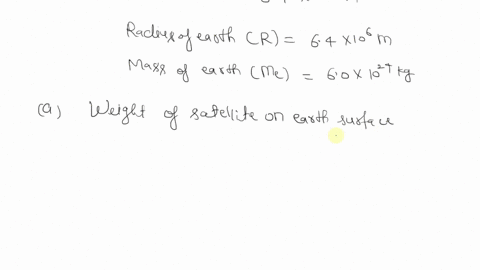 Radius of earth (R) = 6.4 × 10⁶ m
Mass of earth (Me) = 6.0 × 10²⁴ kg
(a) Weight of satellite on earth surface